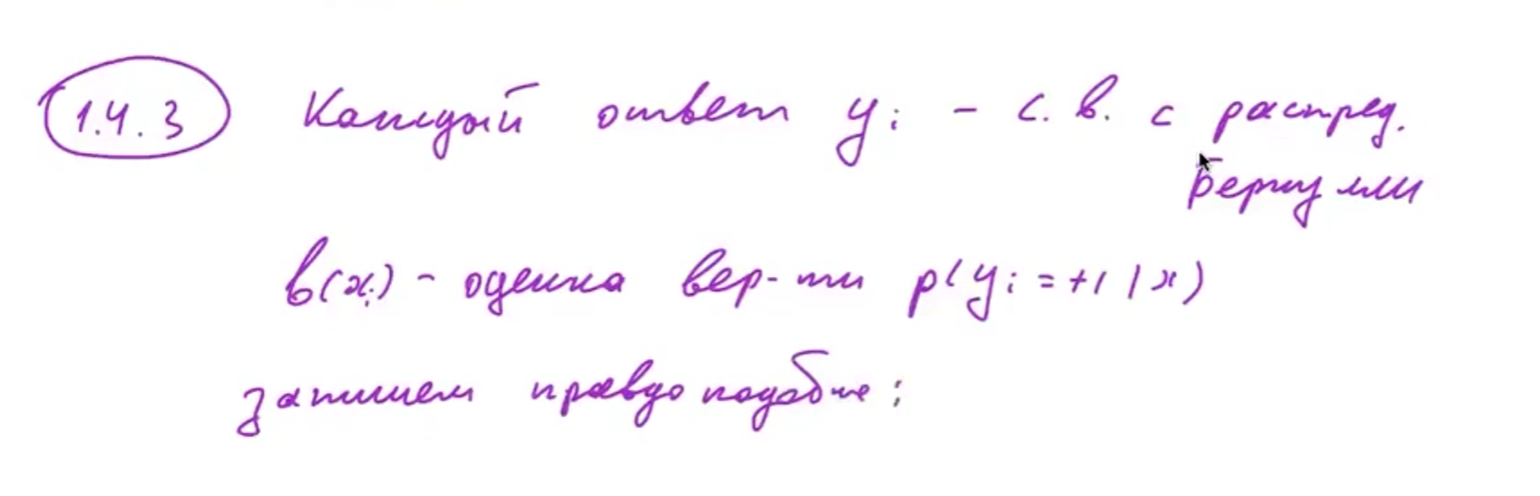 1.4.3 Каждый ответ yᵢ - с. в. с распред.
Бернулли
b(xᵢ) - оценка вер-ти p(yᵢ = +1 | x)
запишем правдоподобие: